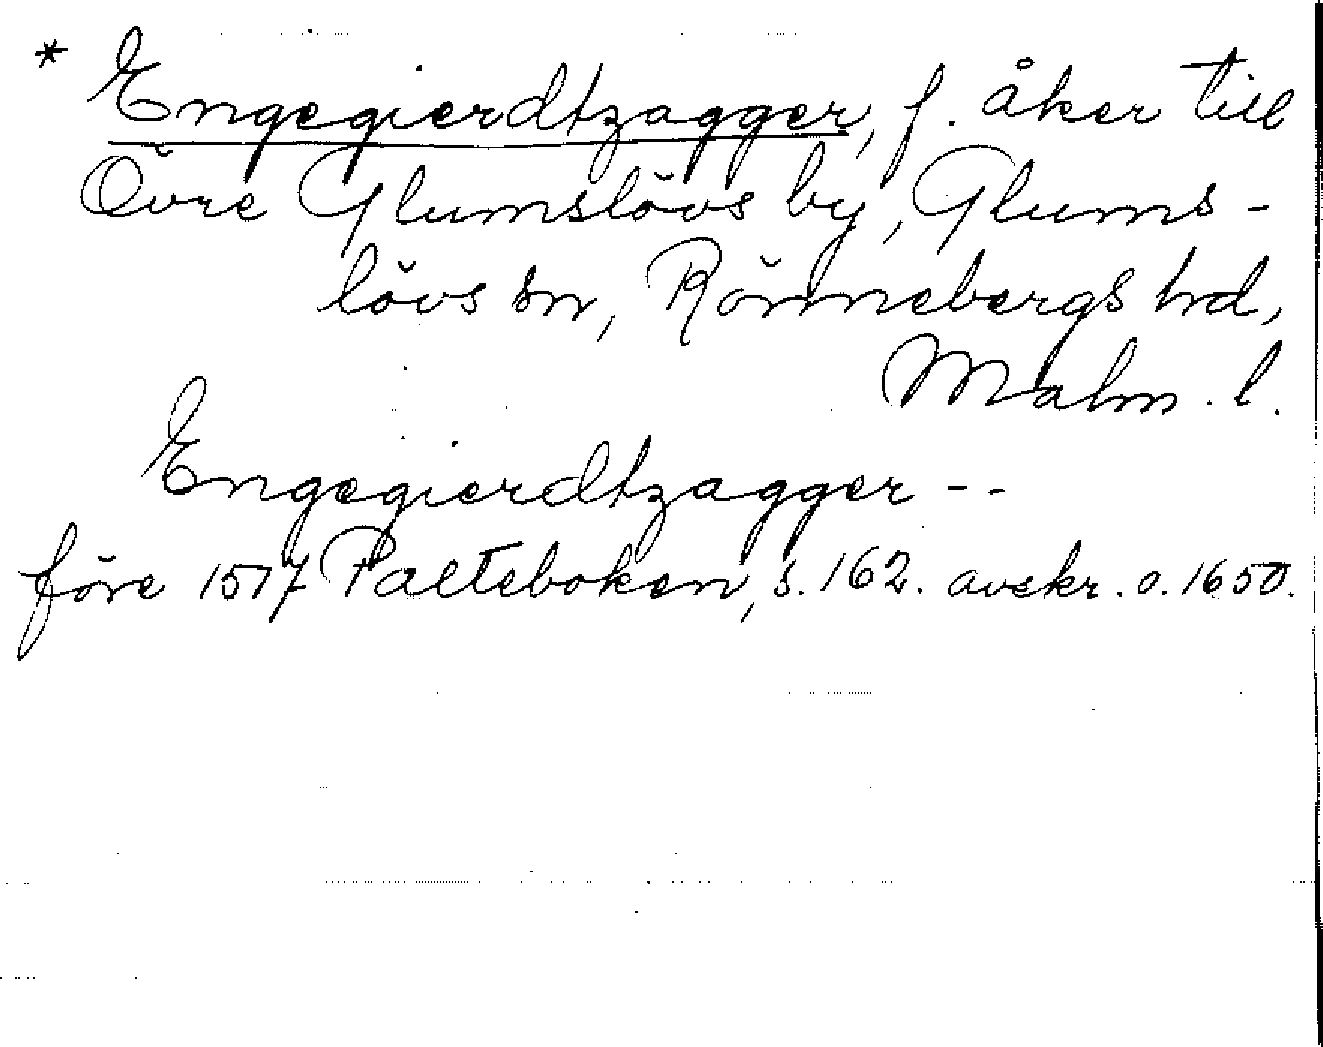 * Engegierdtzagger, f. åker till
Övre Glumslövs by, Glums-
lövs sn, Rönnebergs hd,
Malm. l.
Engegierdtzagger - -
före 1577 Palteboken, s. 162. avskr. o. 1650.